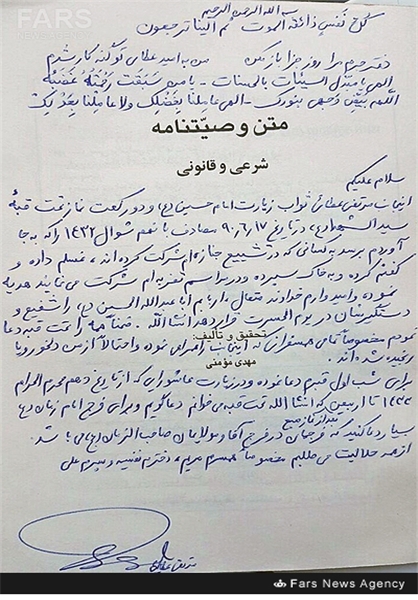 FARS
NEWS AGENCY
بسم الله الرحمن الرحیم
کل نفس ذائقة الموت ثم الینا ترجعون
دفتر جرم مرا روز جزا باز مکن من به امید عطای تو گنه کار شدم
الهی یا مبدل السیئات بالحسنات - یا من سبقت رحمته غضبه
اللهم بیض وجهی بنورک - الهی عاملنا بفضلک ولا عاملنا بعدلک
متن وصیّتنامه
شرعی و قانونی
سلام علیکم
اینجانب مرتضی عطائی ثواب زیارت امام حسین (ع) و دو رکعت نماز تحت قبهٔ
سید الشهداء (ع) در تاریخ ۹۰/۶/۱۷ مصادف با نهم شوال ۱۴۳۲ را که به جا
آوردم برسد به کسانی که در تشییع جنازه ام شرکت کرده اند، غسلم داده و
کفنم کرده و به خاک سپرده و در مراسم تعزیه ام شرکت می نمایند هدیه
نموده و امیدوارم خداوند متعال، اربابم ابا عبدالله الحسین (ع) را شفیع و
دستگیرشان در یوم الحسرت قرار دهد انشاالله. ضمناً همه را تحت قبه دعا
تحقیق و تألیف:
نمودم مخصوصاً تمامی همسفرانی که از اینجانب نموده و احتمالاً از من دلخور و یا
مهدی مؤمنی
رنجیده شده اند.
برای شب اول قبرم دعا نموده و در زیارت عاشورایی که از تاریخ دهم محرم الحرام
۱۴۳۳ تا اربعین که انشاالله تحت قبه می خوانم دعاگویم و برای فرج امام زمان (عج)
بسیار دعا کنید که فرجمان در فرج آقا و مولایمان صاحب الزمان (عج) می باشد.
از همه حلالیت می طلبم مخصوصاً همسرم مریم، دخترم نفیسه و پسرم علی
مرتضی عطائی
Fars News Agency